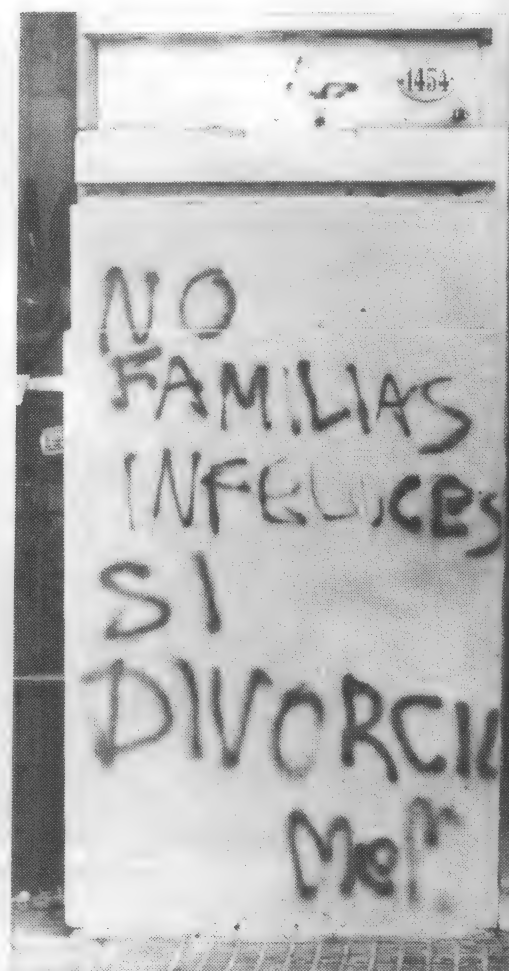 1454
NO
FAMILIAS
INFELICES
SI
DIVORCIO